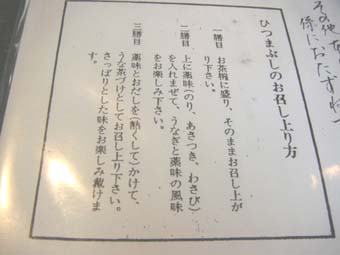 その他
係におたずね
ひつまぶしのお召し上り方
一膳目 お茶椀に盛り、そのままお召し上が
り下さい。
二膳目 上に薬味(のり、あさつき、わさび)
を入れまぜて、うなぎと薬味の風味
をお楽しみ下さい。
三膳目 薬味とおだしを(熱くして)かけて、
うな茶づけとしてお召し上り下さい。
さっぱりとした味をお楽しみ戴けま
す。